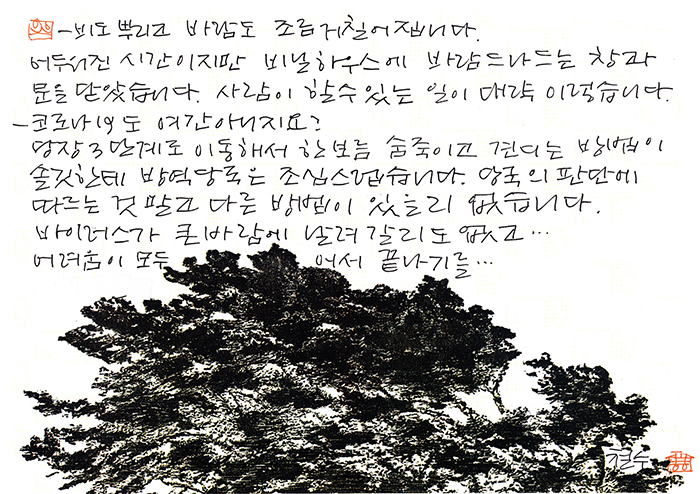 -비도 뿌리고 바람도 조금 거칠어집니다.
어두워진 시간이지만 비닐하우스에 바람드나드는 창과
문을 닫았습니다. 사람이 할 수 있는 일이 대략 이렇습니다.
-코로나19도 여간아니지요?
당장 3단계로 이동해서 한보름 숨죽이고 견디는 방법이
솔깃한데 방역당국은 조심스럽습니다. 당국의 판단에
따르는 것 말고 다른 방법이 있을리 없습니다.
바이러스가 큰바람에 날려갈리도 없고…
어려움이 모두 어서 끝나기를…
철수